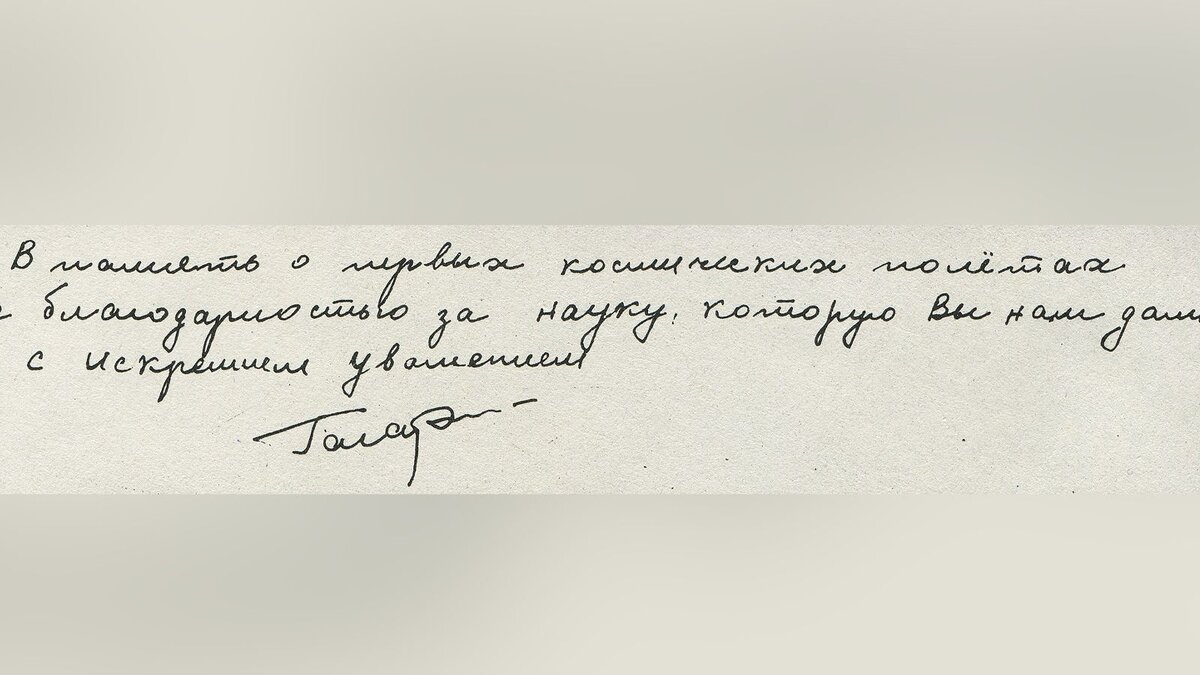 В память о первых космических полётах
с благодарностью за науку, которую Вы нам дали
с искренним уважением
Гагарин